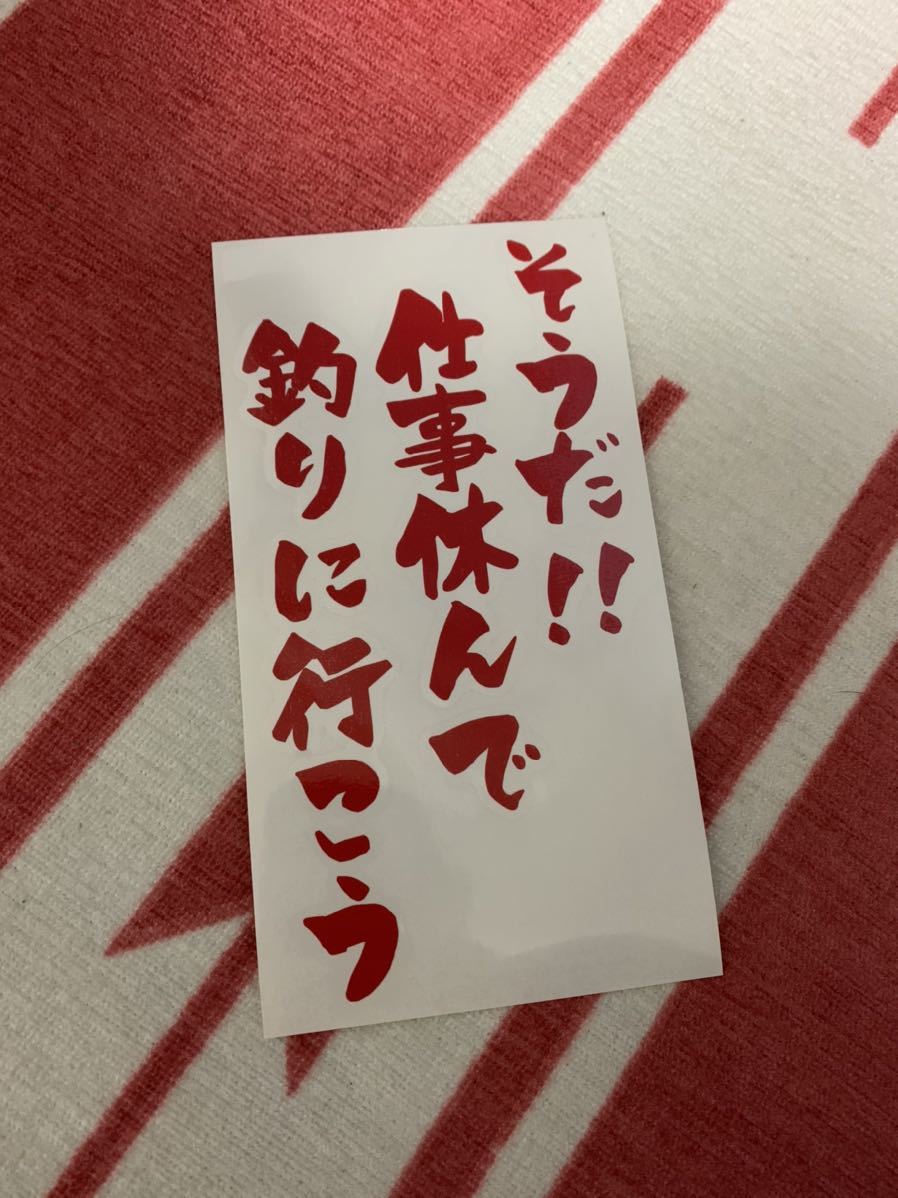 そうだ!!
仕事休んで
釣りに行こう